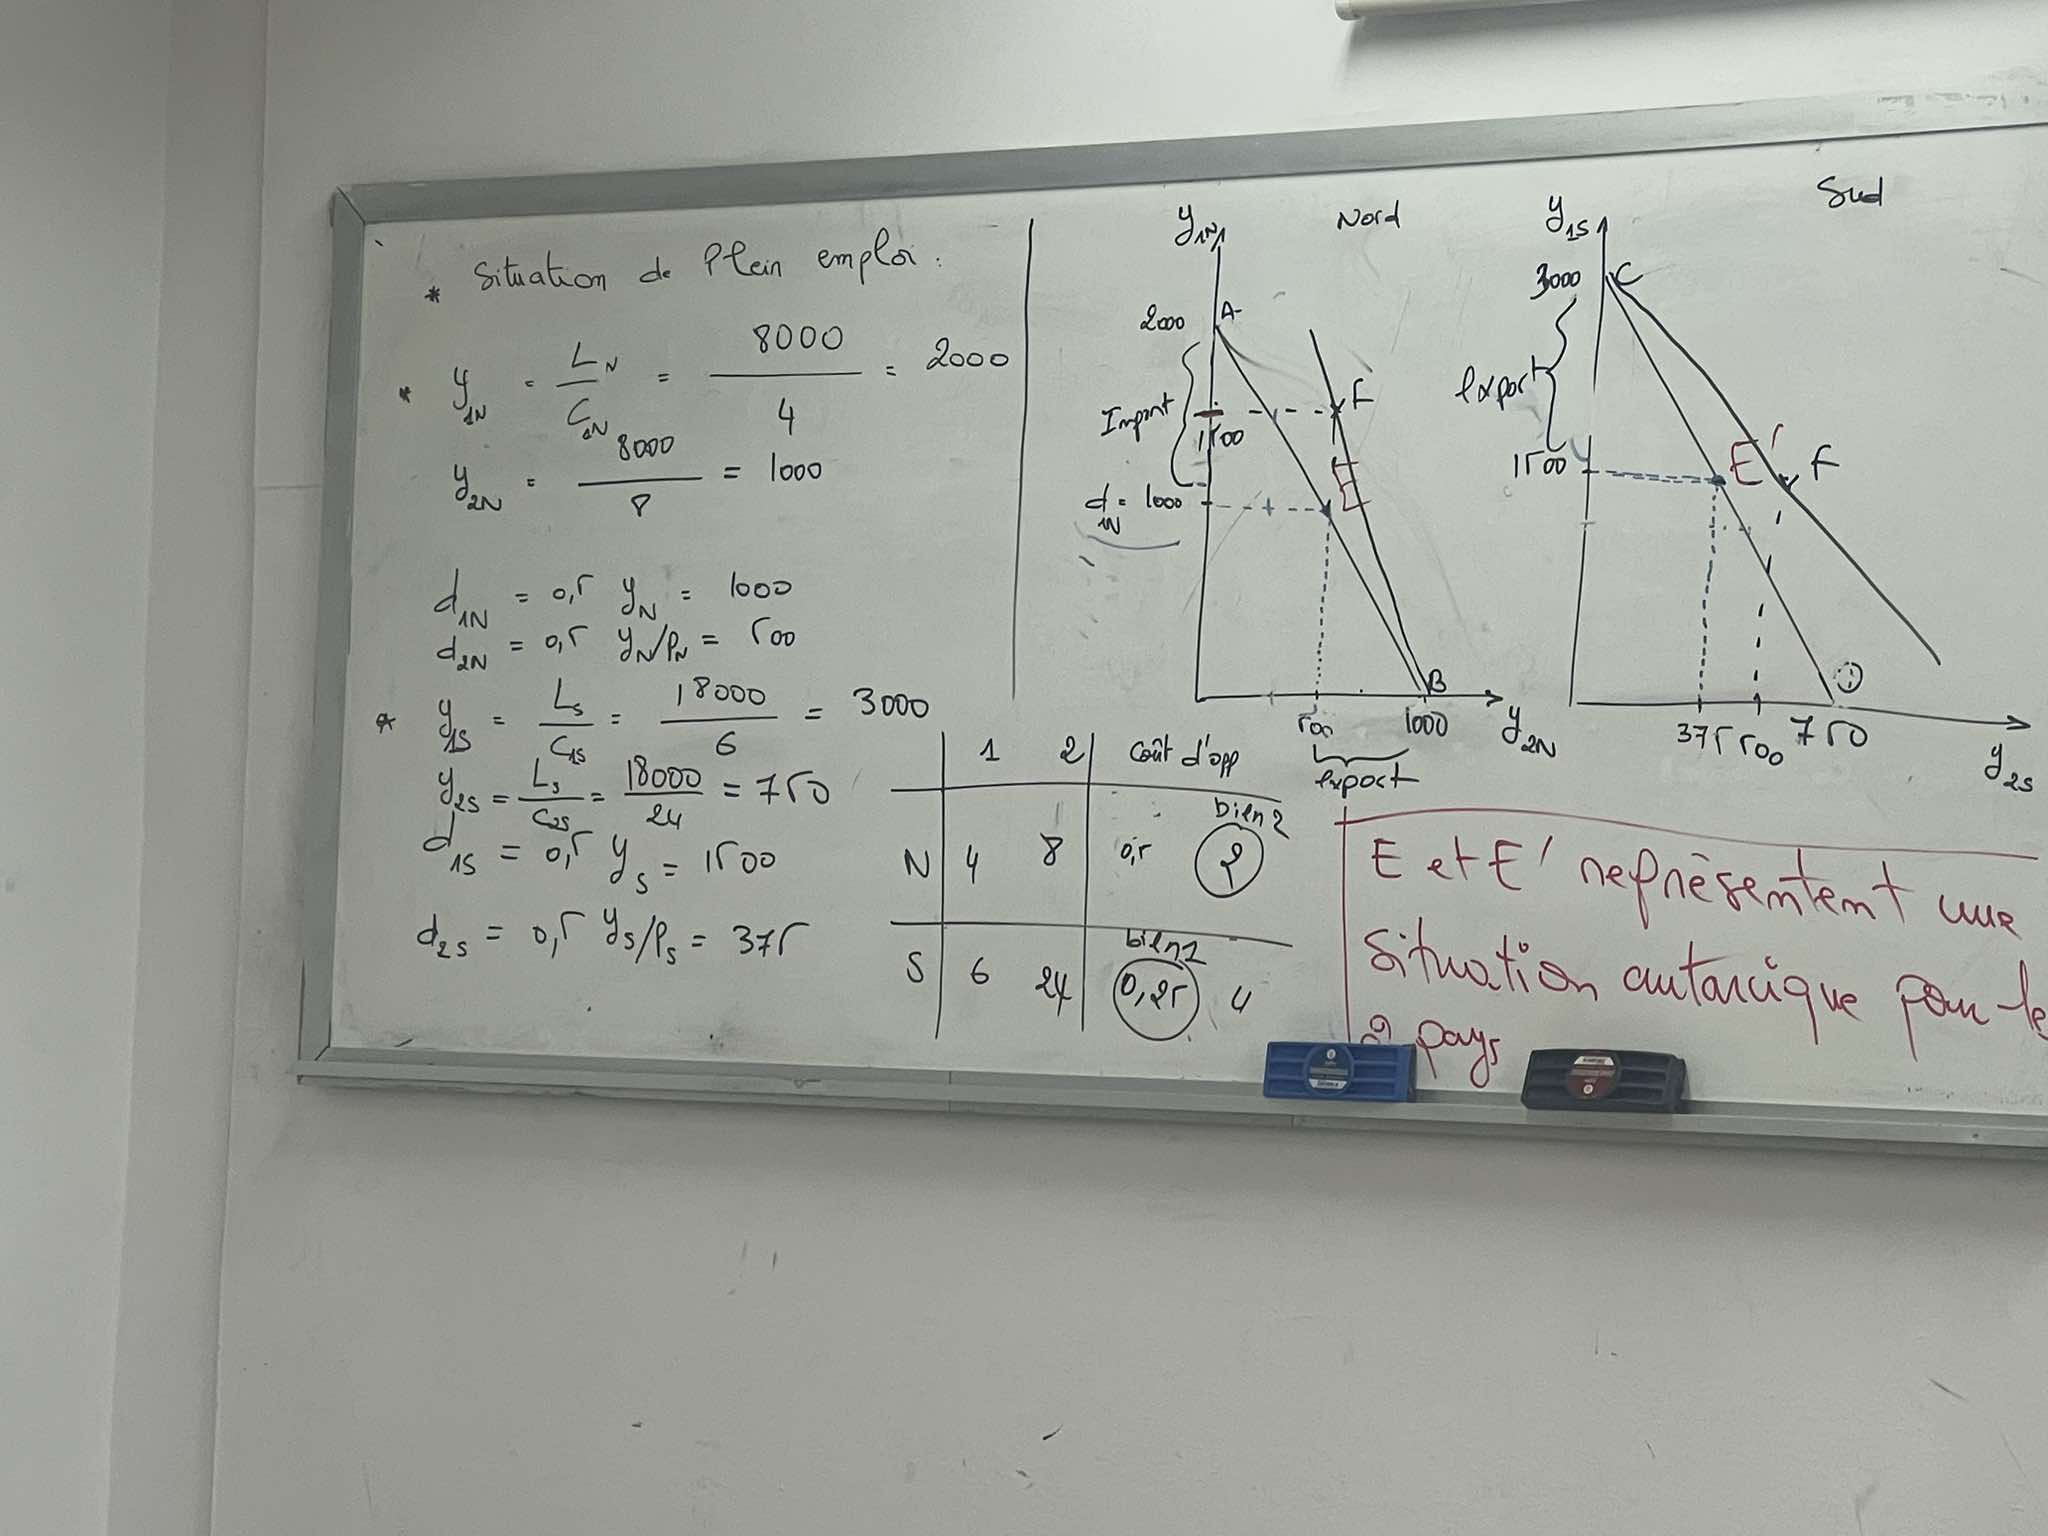 * Situation de Plein emploi :
* y1N = LN/C1N = 8000/4 = 2000
y2N = 8000/8 = 1000
d1N = 0,5 yN = 1000
d2N = 0,5 yN/PN = 500
* y1S = LS/C1S = 18000/6 = 3000
y2S = LS/C2S = 18000/24 = 750
d1S = 0,5 yS = 1500
d2S = 0,5 yS/PS = 375
1 2 Coût d'opp
bien 2
N 4 8 0,5 2
bien 1
S 6 24 0,25 4
y1N Nord
2000 A
Import
1500 F
E
d1N = 1000
B
500 1000 y2N
export
y1S Sud
3000 C
export
1500 E' F
375 500 750 y2S
E et E' représentent une
situation autarcique pour
2 pays